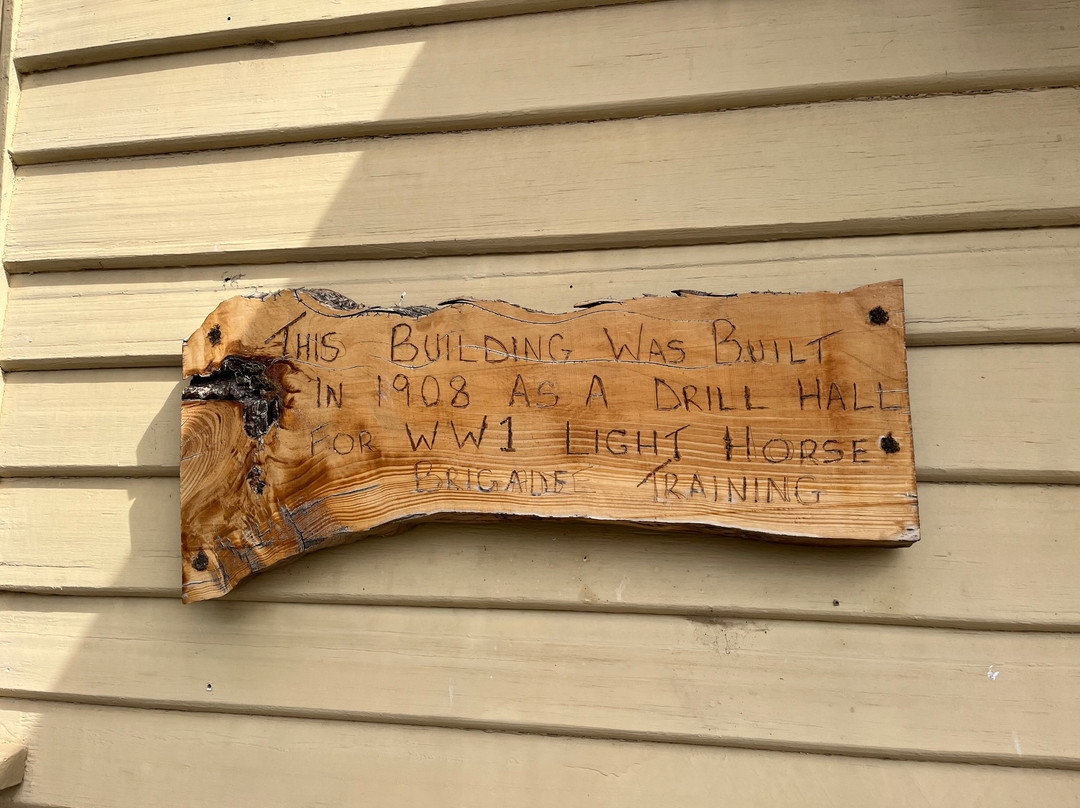 This Building Was Built
In 1908 As A Drill Hall
For WW1 Light Horse
Brigade Training